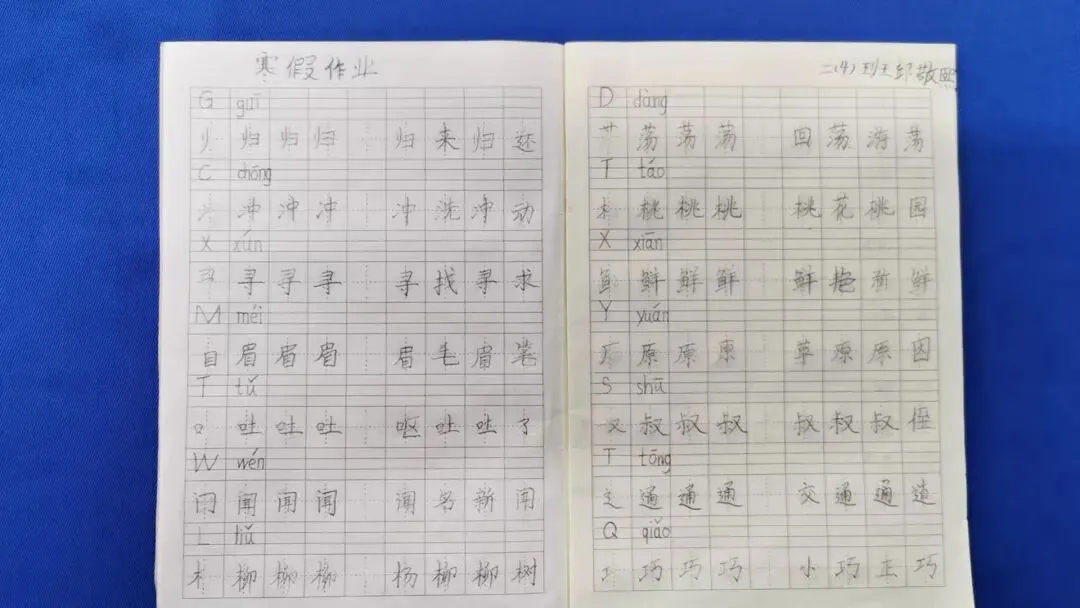 寒假作业
G guī
归 归 归 归 来 归 还
C chōng
冲 冲 冲 冲 洗 冲 动
X xún
寻 寻 寻 寻 找 寻 求
M méi
目 眉 眉 眉 眉 毛 眉 笔
T tǔ
口 吐 吐 吐 呕 吐 吐 了
W wén
闻 闻 闻 闻 名 新 闻
L liǔ
木 柳 柳 柳 杨 柳 柳 树
二(4)班王邱敬熙
D dàng
艹 荡 荡 荡 回 荡 游 荡
T táo
木 桃 桃 桃 桃 花 桃 园
X xiān
鱼 鲜 鲜 鲜 鲜 艳 新 鲜
Y yuán
厂 原 原 原 草 原 原 因
S shū
又 叔 叔 叔 叔 叔 叔 侄
T tōng
辶 通 通 通 交 通 通 道
Q qiǎo
工 巧 巧 巧 小 巧 正 巧